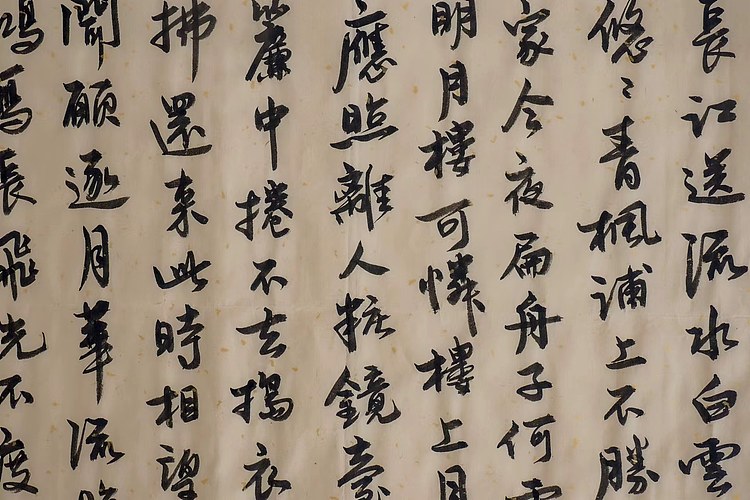 長江送流水白雲
悠〻青楓浦上不勝
家今夜扁舟子何
明月樓可憐樓上月
應照離人粧鏡臺
簾中捲不去搗衣
拂還來此時相望
聞願逐月華流照
鴻雁長飛光不度